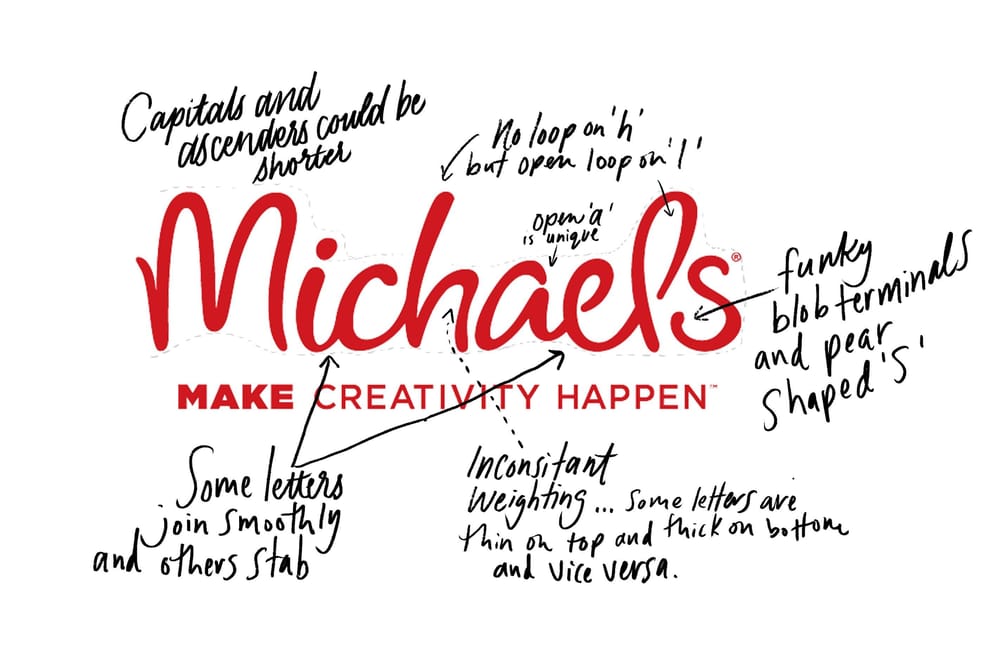 Capitals and
ascenders could be
shorter
No loop on 'h'
but open loop on 'l'
open 'a'
is unique
Michaels®
funky
blob terminals
and pear
shaped 'S'
MAKE CREATIVITY HAPPEN™
Some letters
join smoothly
and others stab
Inconsitant
weighting... some letters are
thin on top and thick on bottom
and vice versa.